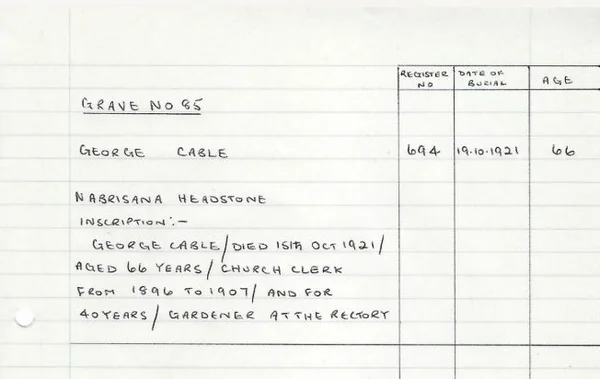 REGISTER NO DATE OF BURIAL AGE
GRAVE NO 85
GEORGE CABLE 694 19.10.1921 66
NABRISANA HEADSTONE
INSCRIPTION:-
GEORGE CABLE/DIED 15TH OCT 1921/
AGED 66 YEARS/ CHURCH CLERK
FROM 1896 TO 1907/ AND FOR
40 YEARS/ GARDENER AT THE RECTORY